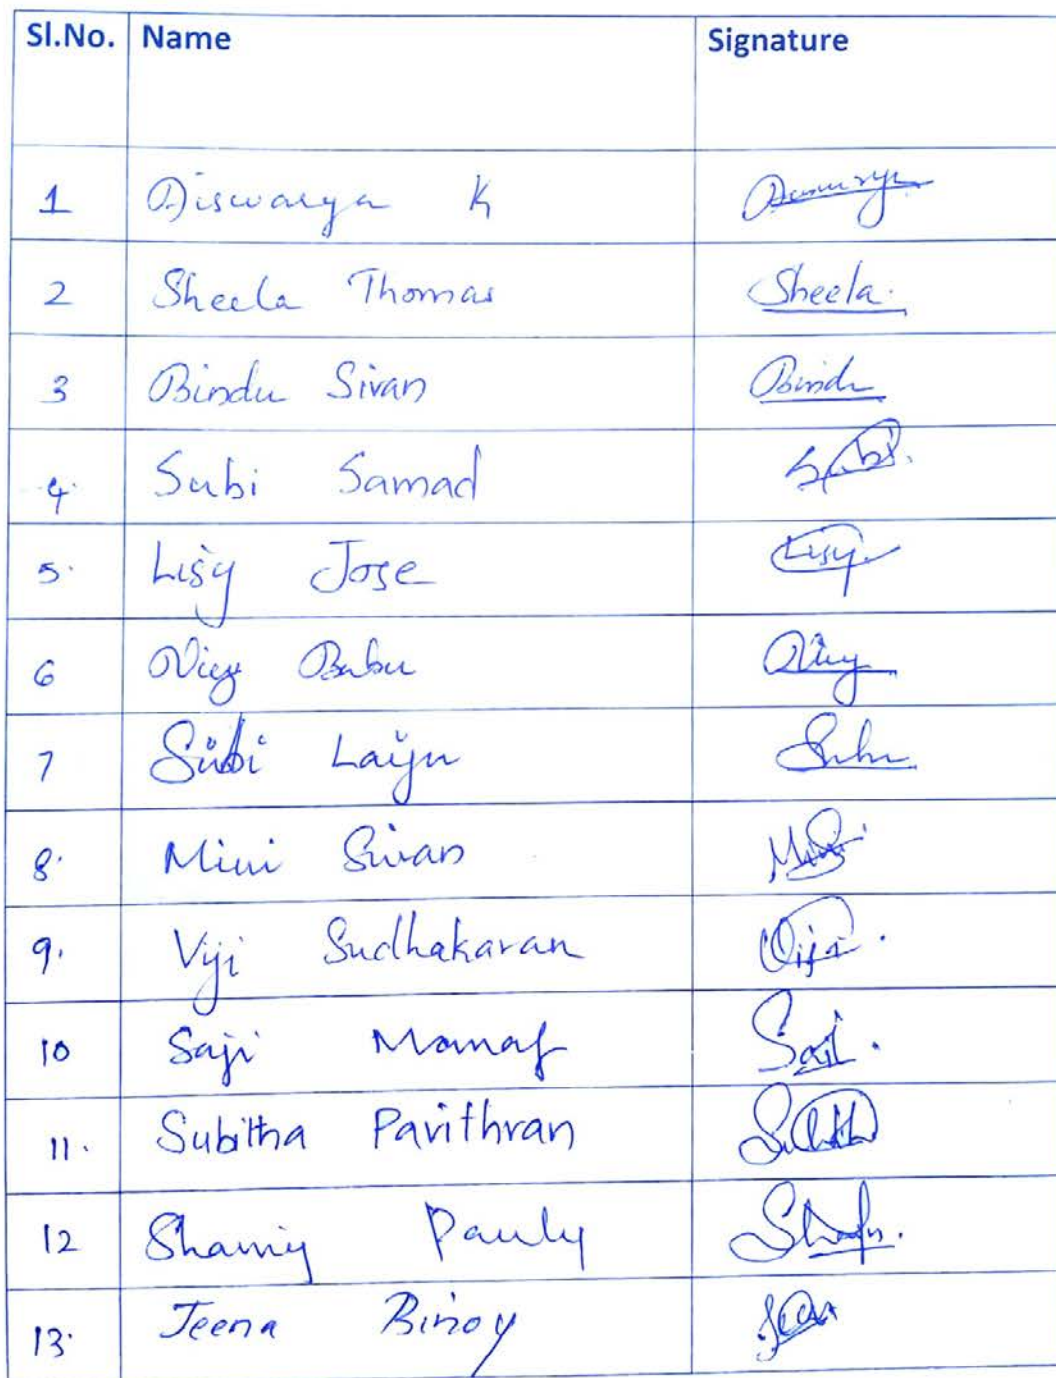 Sl.No. Name Signature
1 Aiswarya K
2 Sheela Thomas Sheela.
3 Bindu Sivan Bindu
4. Subi Samad Subi.
5. Lisy Jose Lisy.
6 Babu
7 Subi Laiju
8. Mini Sivan Mini
9. Viji Sudhakaran Viji.
10 Saji Manaf Saji.
11. Subitha Pavithran
12 Shamiy Pauly
13. Jeena Binoy Jeena